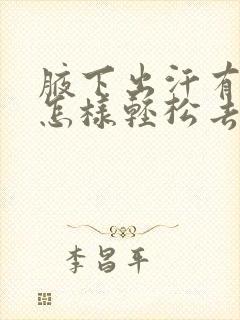 腋下出汗有
怎樣輕松去
李昌平